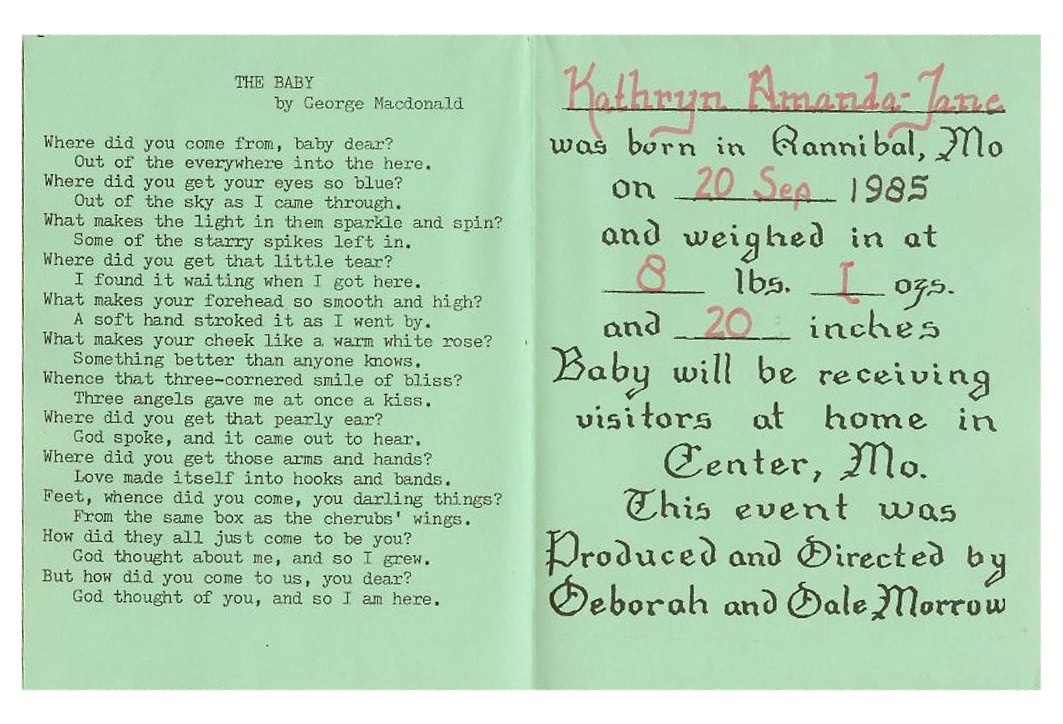 THE BABY
by George Macdonald
Where did you come from, baby dear?
Out of the everywhere into the here.
Where did you get your eyes so blue?
Out of the sky as I came through.
What makes the light in them sparkle and spin?
Some of the starry spikes left in.
Where did you get that little tear?
I found it waiting when I got here.
What makes your forehead so smooth and high?
A soft hand stroked it as I went by.
What makes your cheek like a warm white rose?
Something better than anyone knows.
Whence that three-cornered smile of bliss?
Three angels gave me at once a kiss.
Where did you get that pearly ear?
God spoke, and it came out to hear.
Where did you get those arms and hands?
Love made itself into hooks and bands.
Feet, whence did you come, you darling things?
From the same box as the cherubs' wings.
How did they all just come to be you?
God thought about me, and so I grew.
But how did you come to us, you dear?
God thought of you, and so I am here.
Kathryn Amanda-Jane
was born in Hannibal, Mo
on 20 Sep 1985
and weighed in at
8 lbs. 1 ozs.
and 20 inches
Baby will be receiving
visitors at home in
Center, Mo.
This event was
Produced and Directed by
Deborah and Dale Morrow